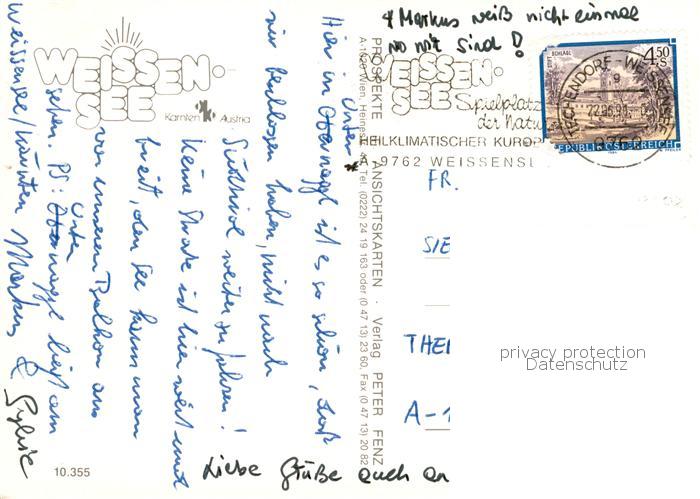 * Markus weiß nicht einmal
wo wir sind!
WEISSEN-
SEE
Kärnten Austria
WEISSEN-
SEE Spielplatz
der Natur
HEILKLIMATISCHER KUROR
9762 WEISSENSE
STIFT SCHLÄGL
4.50
S
TECHENDORF-WEISSENSEE
22.06.90
9762
REPUBLIK ÖSTERREICH
FR.
SIE
THE
A-1
PROSPEKTE · ANSICHTSKARTEN · Verlag PETER FENZ
Tel. (0222) 24 19 163 oder (0 47 13) 23 60, Fax (0 47 13) 20 82
Unter *
Hier in Obernaggl ist es so schön, daß
wir beschlossen haben, nicht nach
Südtirol weiterzufahren!
Keine Straße ist hier weit und
breit, den See kann man
von unserem Balkon aus
sehen. PS: Unter
Obernaggl liegt am
Weissensee/Kärnten Markus &
Sylvie
Liebe Grüße auch an
10.355
privacy protection
Datenschutz